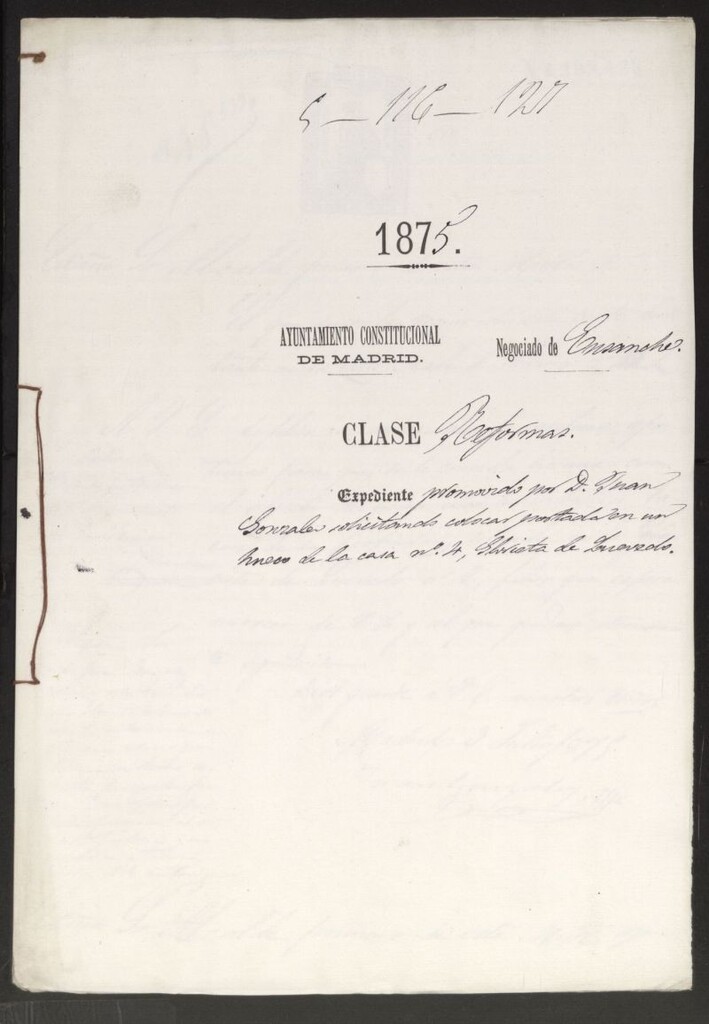 5 - 116 - 127
1875.
AYUNTAMIENTO CONSTITUCIONAL
DE MADRID.
Negociado de Ensanche.
CLASE Reformas.
Expediente promovido por D. Juan
Gonzalez solicitando colocar portada en un
hueco de la casa nº. 4, Glorieta de Quevedo.